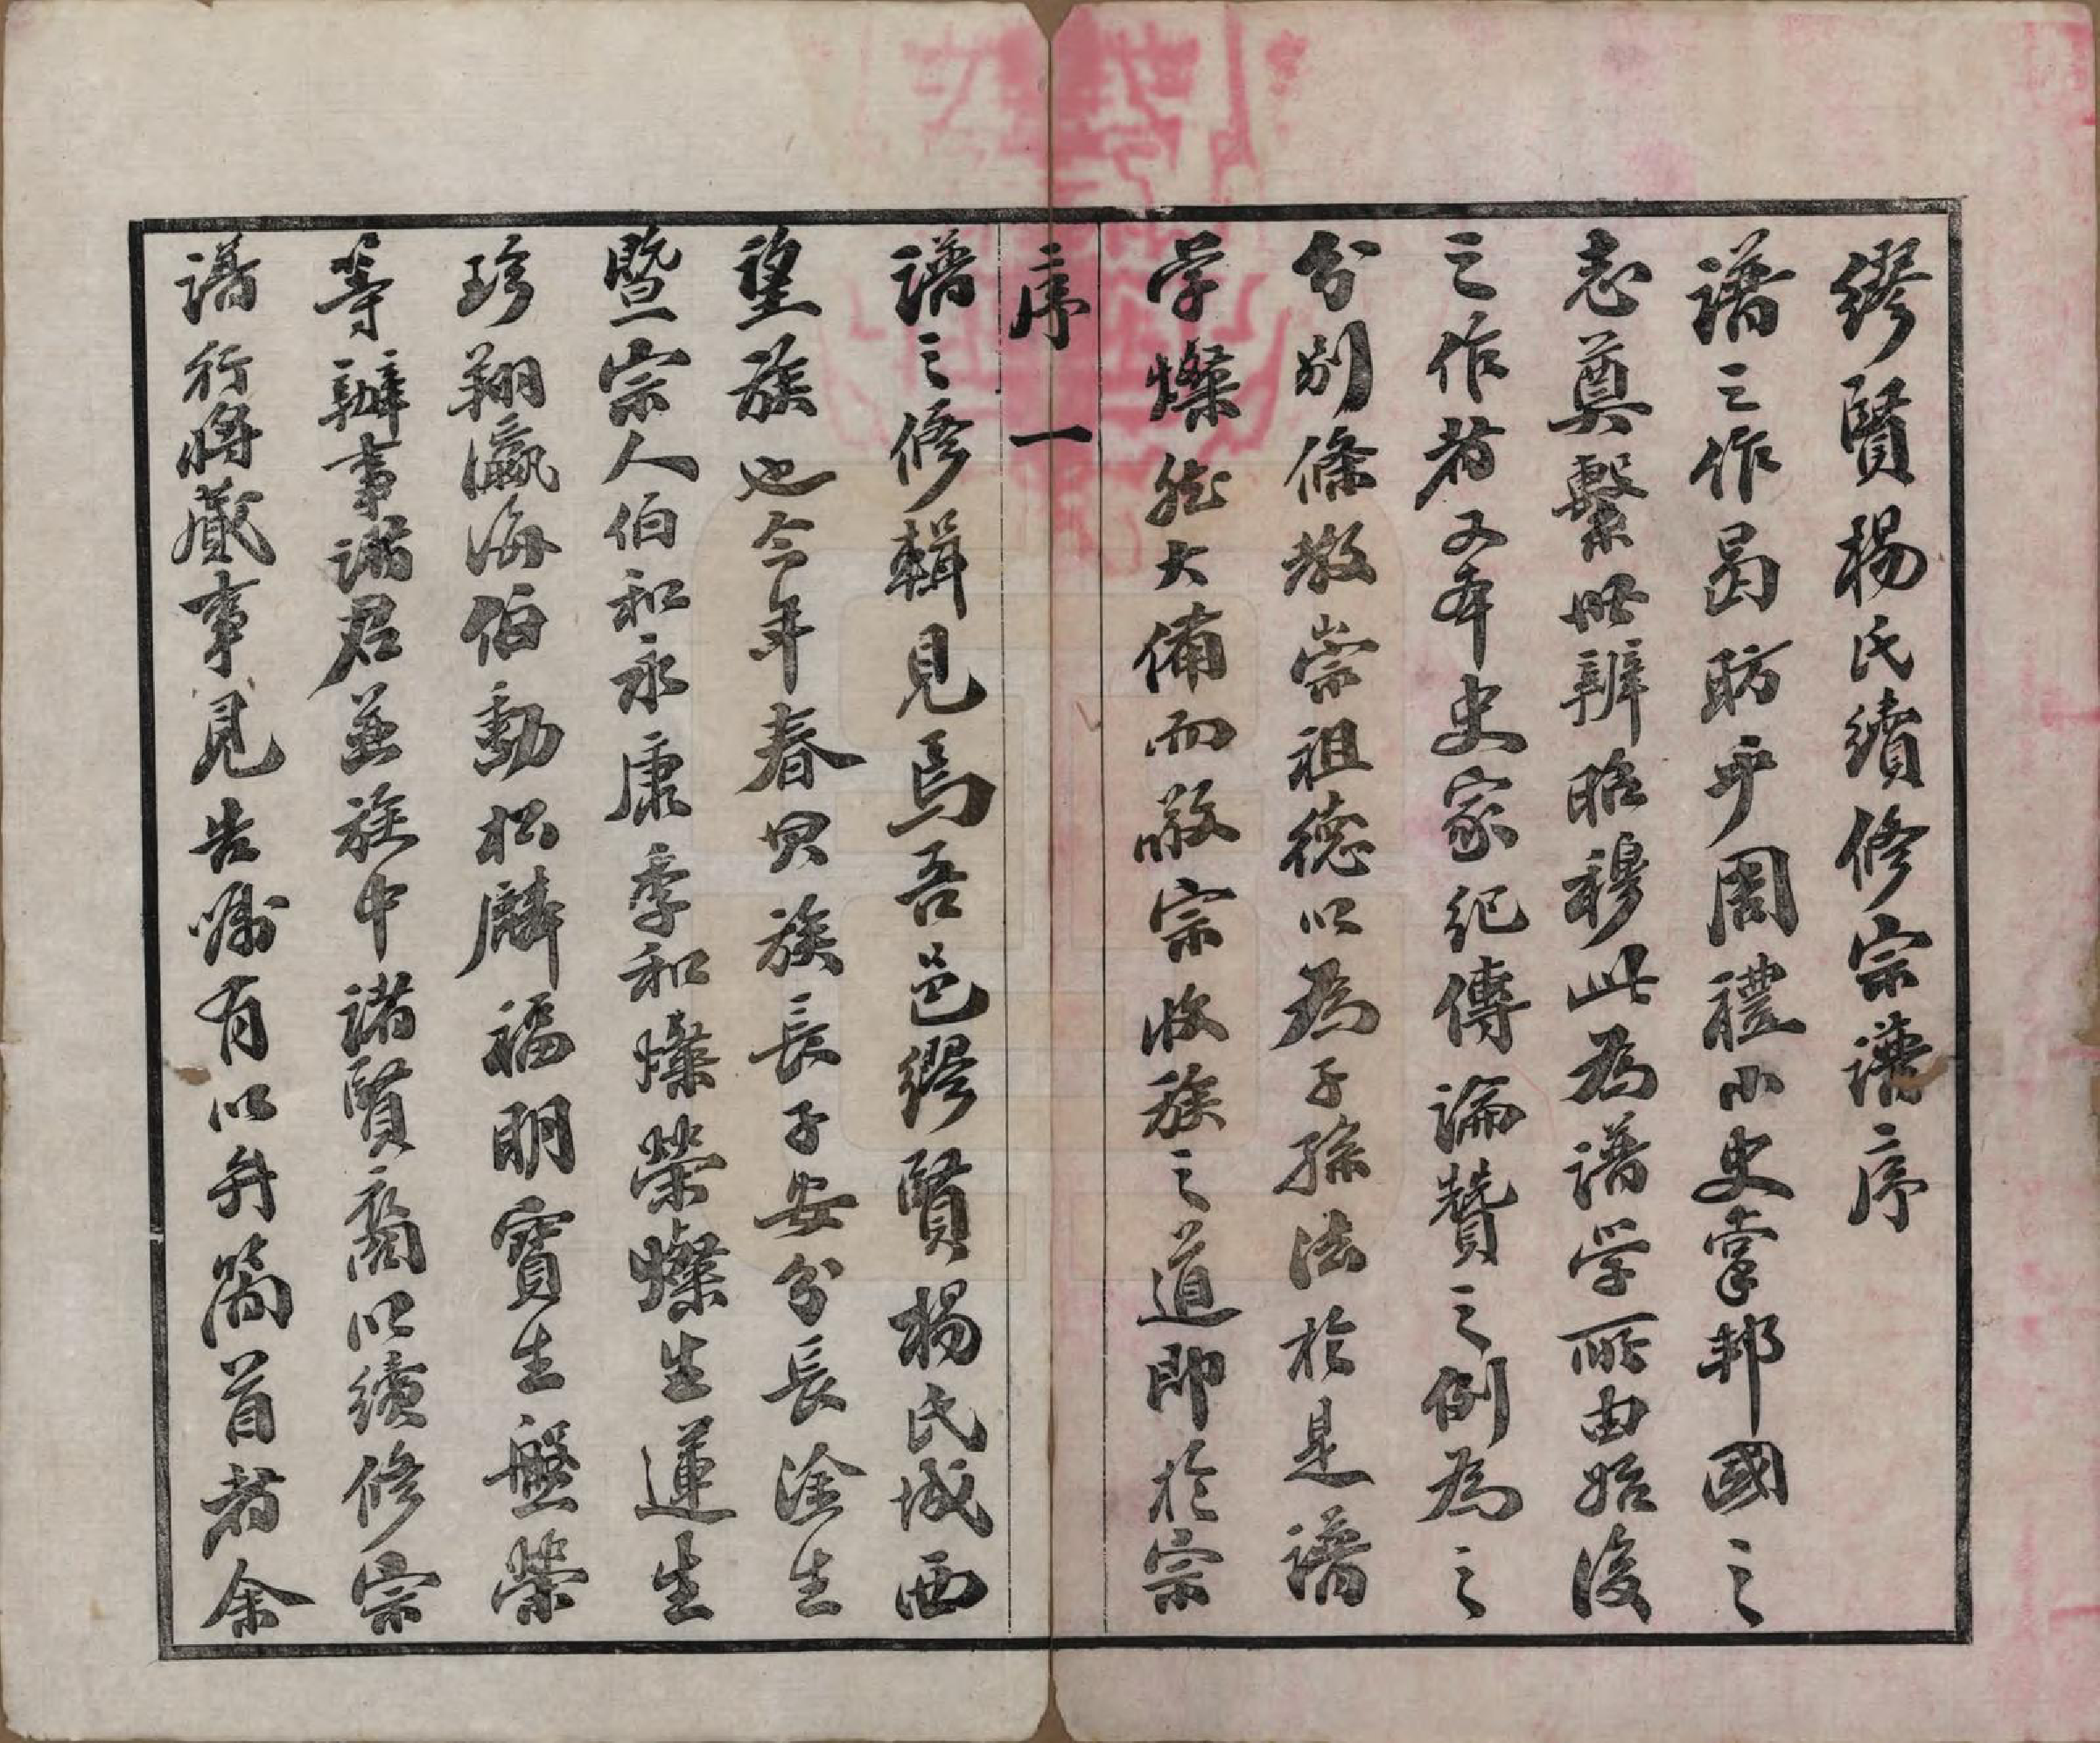 繆賢楊氏續修宗譜序
譜之作曷昉乎周禮小史掌邦國之
志奠繫世辨昭穆此為譜学所由始後
之作者又本史家紀傳論贊之例為之
分別條教崇祖德以為子孫法於是譜
学燦然大備而敬宗收族之道即於宗
序 一
譜之修輯見焉吾邑繆賢楊氏城西
望族也今年春其族長子安分長淦生
暨宗人伯和永康季和燦榮燦生蓮生
珍翔瀛海伯勳松麟福明寶生盤榮
等辦事諸君並族中諸賢裔以續修宗
譜行將蕆事見告囑有以弁簡首者余